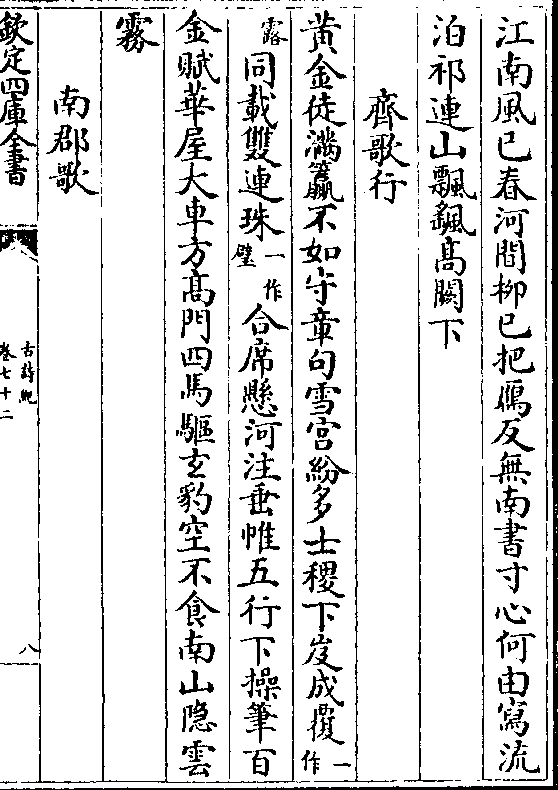 江南風已春河間栁已把鴈反無南書寸心何由寫流
泊祁連山飄颻髙闕下
齊歌行
黄金徒滿籯不如守章句雪宫紛多士稷下岌成覆一作
露同載雙連珠一作璧合席懸河注垂帷五行下操筆百
金賦華屋大車方髙門四馬驅玄豹空不食南山隱雲
霧
南郡歌
欽定四庫全書
古詩紀
卷七十二
八